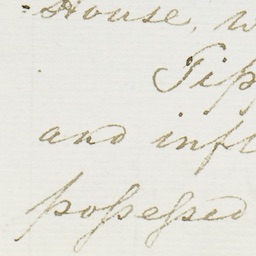 House, w
Tip
and infl
possessed